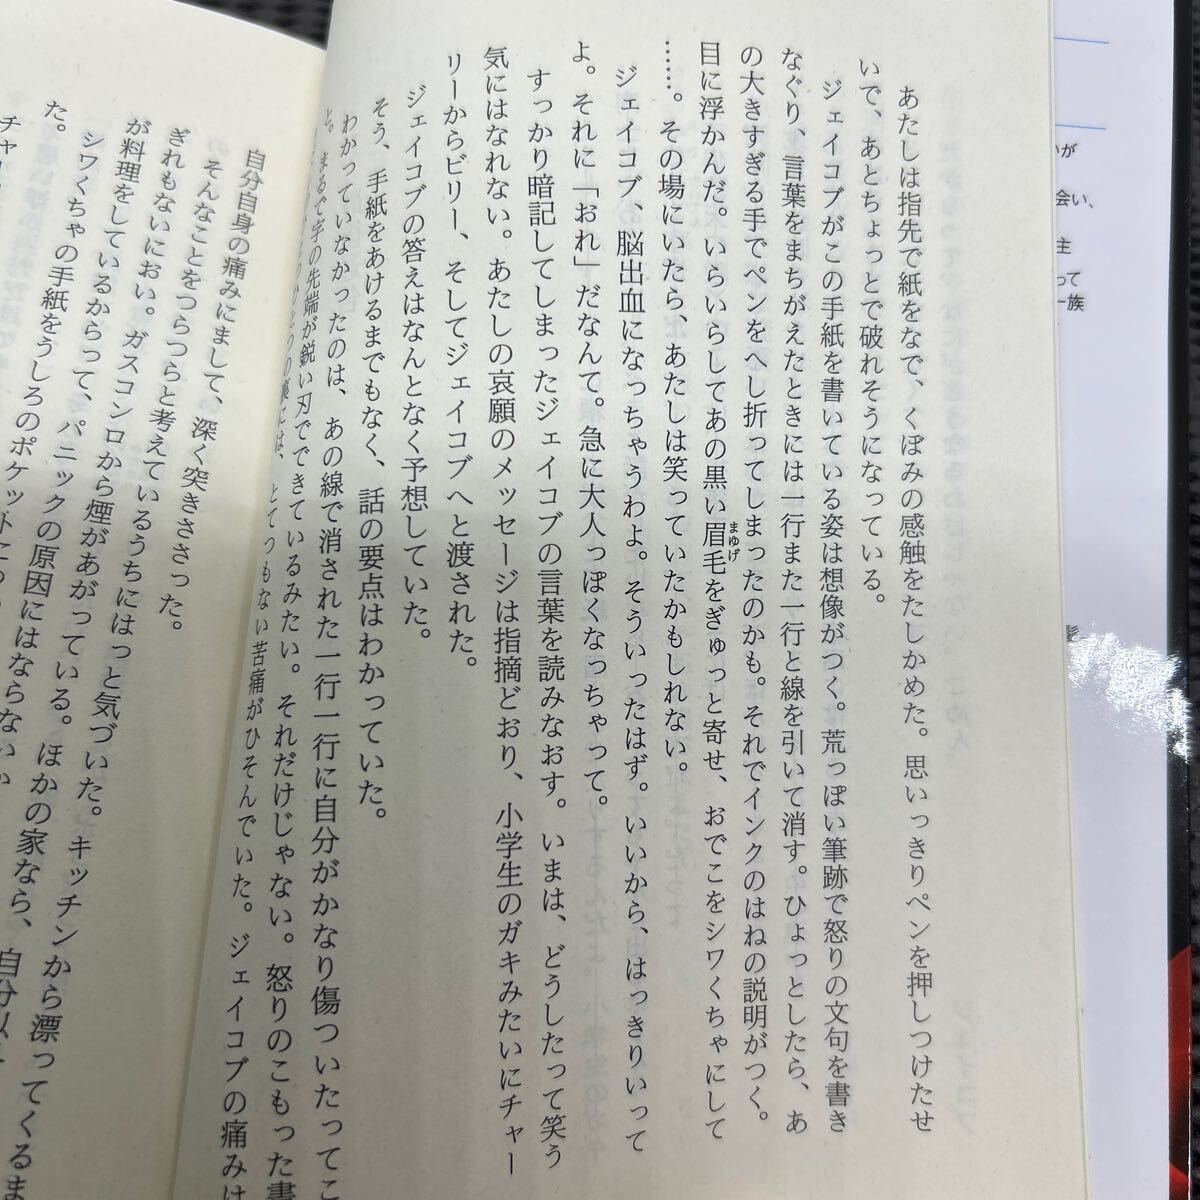 あたしは指先で紙をなで、くぼみの感触をたしかめた。思いっきりペンを押しつけたせ
いで、あとちょっとで破れそうになっている。
ジェイコブがこの手紙を書いている姿は想像がつく。荒っぽい筆跡で怒りの文句を書き
なぐり、言葉をまちがえたときには一行また一行と線を引いて消す。ひょっとしたら、あ
の大きすぎる手でペンをへし折ってしまったのかも。それでインクのはねの説明がつく。
目に浮かんだ。いらいらしてあの黒い眉毛をぎゅっと寄せ、おでこをシワくちゃにして
まゆげ
……。その場にいたら、あたしは笑っていたかもしれない。
ジェイコブ、脳出血になっちゃうわよ。そういったはず。いいから、はっきりいって
よ。それに「おれ」だなんて。急に大人っぽくなっちゃって。
すっかり暗記してしまったジェイコブの言葉を読みなおす。いまは、どうしたって笑う
気にはなれない。あたしの哀願のメッセージは指摘どおり、小学生のガキみたいにチャー
リーからビリー、そしてジェイコブへと渡された。
ジェイコブの答えはなんとなく予想していた。
そう、手紙をあけるまでもなく、話の要点はわかっていた。
わかっていなかったのは、あの線で消された一行一行に自分がかなり傷ついたってこ
と。まるで字の先端が鋭い刃でできているみたい。それだけじゃない。怒りのこもった書
の裏には、とてつもない苦痛がひそんでいた。ジェイコブの痛みは
自分自身の痛みにまして、深く突きささった。
そんなことをつらつらと考えているうちにはっと気づいた。キッチンから漂ってくるま
ぎれもないにおい。ガスコンロから煙があがっている。ほかの家なら、自分以
が料理をしているからって、パニックの原因にはならない
シワくちゃの手紙をうしろのポケットに
た。
チャー
が
会い、
主
って
一族